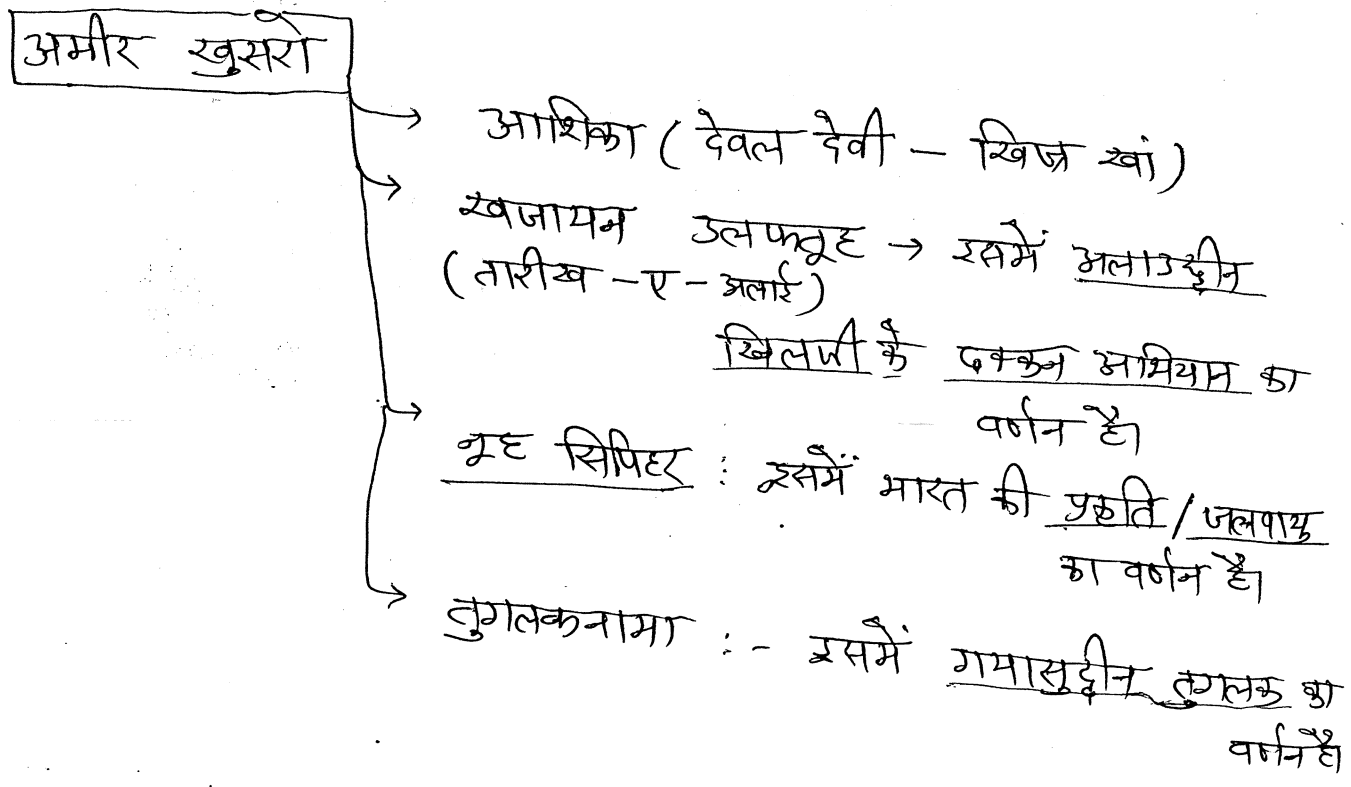 अमीर खुसरो
आशिका ( देवल देवी – खिज्र खां )
खजायन उलफतूह → इसमें अलाउद्दीन
( तारीख – ए – अलाई )
खिलजी के दक्कन अभियान का
वर्णन है।
नूह सिपिहर : इसमें भारत की प्रकृति / जलवायु
का वर्णन है।
तुगलकनामा :- इसमें गयासुद्दीन तुगलक का
वर्णन है।